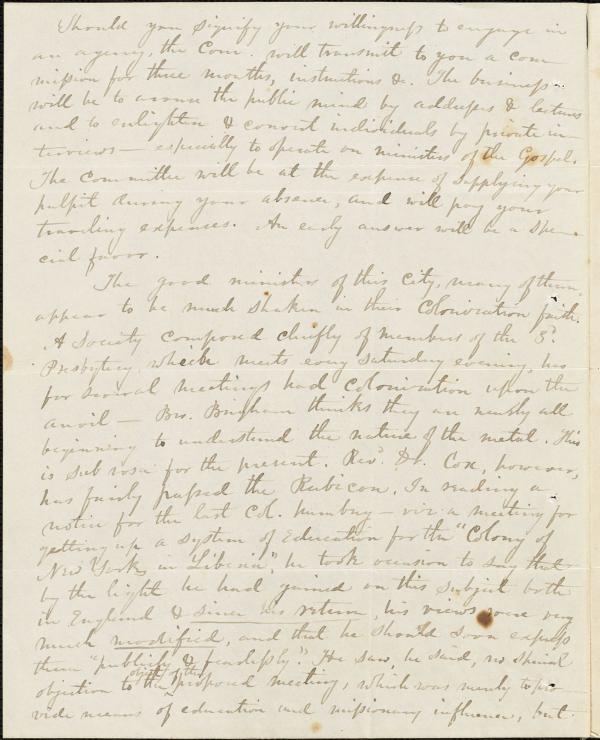 Should you signify your willingness to engage in
an agency, the Com. will transmit to you a com
mission for three months, instructions &c. The business
will be to arouse the public mind by addresses & lectures
and to enlighten & convert individuals by private in
terviews — especially to operate on ministers of the Gospel.
The Committee will be at the expense of supplying your
pulpit during your absence, and will pay your
traveling expenses. An early answer will be a spe-
cial favor.
The good ministers of this City, many of them,
appear to be much shaken in their Colonization faith.
A Society composed chiefly of members of the 3d.
Presbytery, which meets every saturday evening, has
for several meetings had Colonization upon the
anvil — Bro. Brigham thinks they are nearly all
beginning to understand the nature of the metal. This
is sub rosa for the present. Revd. Dr. Cox, however,
has fairly passed the Rubicon. In reading a
notice for the last Col. humbug — viz a meeting for
getting up a system of Education for the "Colony of
New York, in Liberia", he took occasion to say that
by the light he had gained on this subject both
in England & since his return, his views were very
much modified, and that he should soon express
them "publicly & fearlessly". He saw, he said, no special
objection to the object of the proposed meeting, which was merely to pro
vide means of education and missionary influence, but